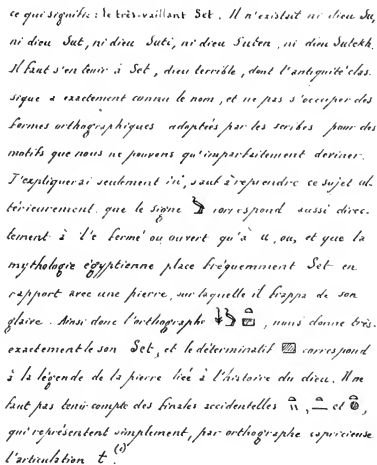 ce qui signifie : le très-vaillant Set. Il n'existait ni dieu Su,
ni dieu Sut, ni dieu Suti, ni dieu Suten, ni dieu Sutekh.
Il faut s'en tenir à Set, dieu terrible, dont l'antiquité clas-
sique a exactement connu le nom, et ne pas s'occuper des
formes orthographiques adoptées par les scribes pour des
motifs que nous ne pouvons qu'imparfaitement deviner.
J'expliquerai seulement ici, sauf à reprendre ce sujet ul-
térieurement que le signe correspond aussi direc-
tement à l'e fermé ou ouvert qu'à u, ou, et que la
mythologie égyptienne place fréquemment Set en
rapport avec une pierre, sur laquelle il frappa de son
glaive. Ainsi donc l'orthographe , nous donne très-
exactement le son Set, et le déterminatif correspond
à la légende de la pierre liée à l'histoire du dieu. Il ne
faut pas tenir compte des finales accidentelles , et ,
qui représentent simplement, par orthographe capricieuse
l'articulation t. (1)